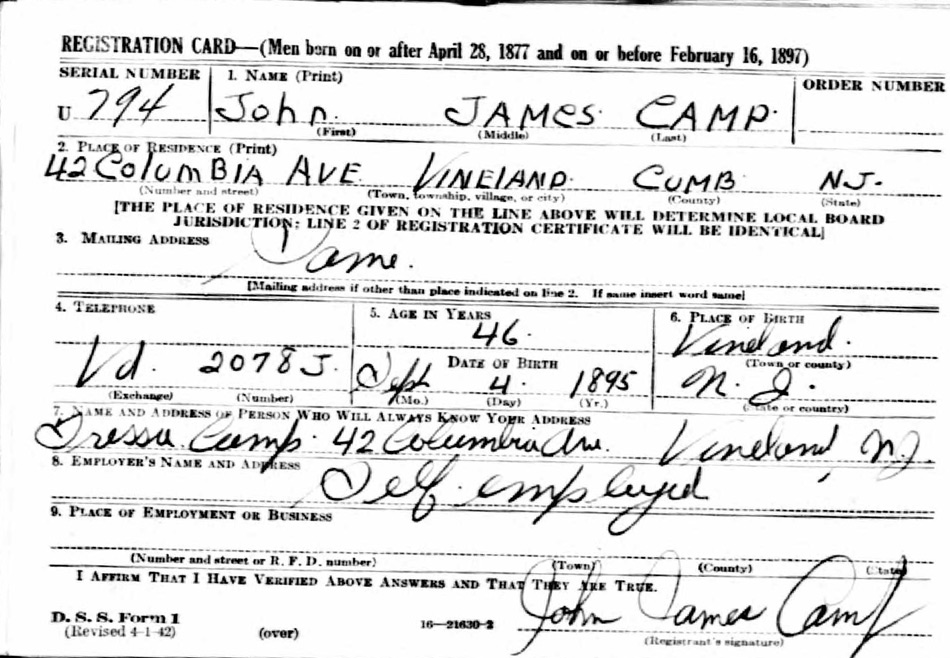 REGISTRATION CARD—(Men born on or after April 28, 1877 and on or before February 16, 1897)
SERIAL NUMBER 1. NAME (Print) ORDER NUMBER
U 794 John JAMES CAMP
(First) (Middle) (Last)
2. PLACE OF RESIDENCE (Print)
42 COLUMBIA AVE VINELAND CUMB N.J.
(Number and street) (Town, township, village, or city) (County) (State)
[THE PLACE OF RESIDENCE GIVEN ON THE LINE ABOVE WILL DETERMINE LOCAL BOARD
JURISDICTION; LINE 2 OF REGISTRATION CERTIFICATE WILL BE IDENTICAL]
3. MAILING ADDRESS
Same.
[Mailing address if other than place indicated on line 2. If same insert word same]
4. TELEPHONE 5. AGE IN YEARS 6. PLACE OF BIRTH
46. Vineland.
DATE OF BIRTH (Town or county)
Vd. 2078J. Sept 4. 1895 N. J.
(Exchange) (Number) (Mo.) (Day) (Yr.) (State or country)
7. NAME AND ADDRESS OF PERSON WHO WILL ALWAYS KNOW YOUR ADDRESS
Tressa Camp. 42 Columbia Ave. Vineland, N.J.
8. EMPLOYER'S NAME AND ADDRESS
Self employed
9. PLACE OF EMPLOYMENT OR BUSINESS
(Number and street or R. F. D. number) (Town) (County) (State)
I AFFIRM THAT I HAVE VERIFIED ABOVE ANSWERS AND THAT THEY ARE TRUE.
D. S. S. Form 1
(Revised 4-1-42) (over) 16—21630-2 John James Camp
(Registrant's signature)